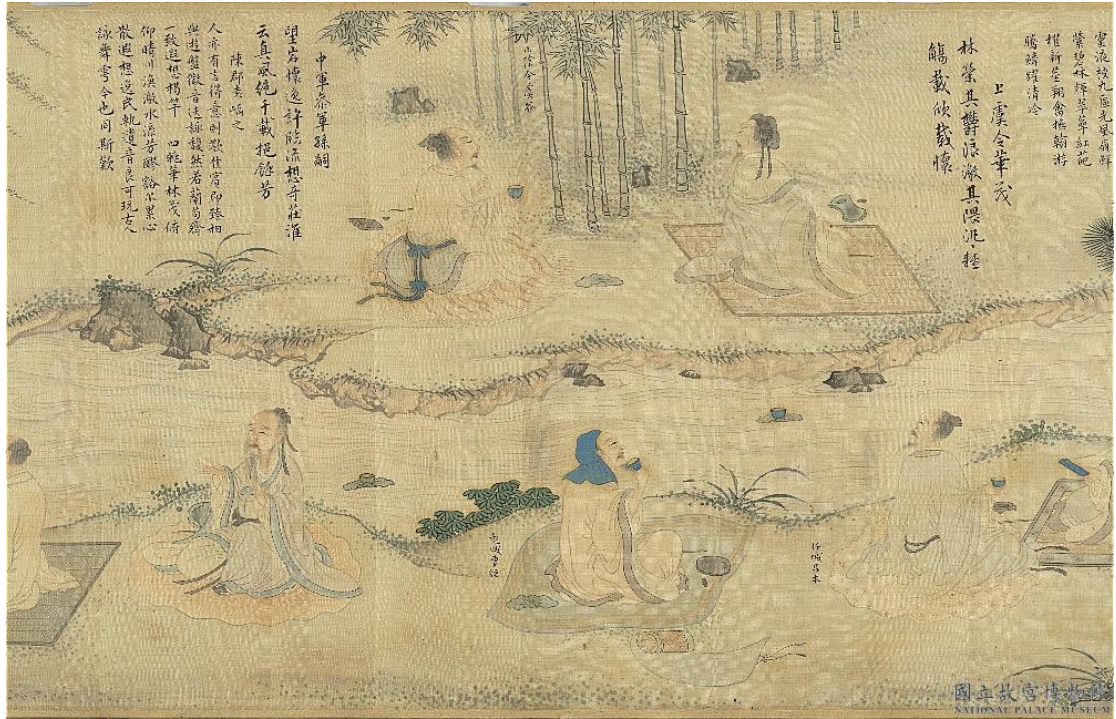 靈液被九區光風扇鮮
碧林輝翠萼紅葩
擢新莖翔禽撫翰游
騰鱗躍清泠
上虞令華茂
林榮其鬱浪激其隈汎〻輕
觴載欣載懷
山陰令虞谷
中軍參軍孫嗣
望岩懷逸許臨流想奇莊誰
云真風絕千載挹餘芳
陳郡袁嶠之
人亦有言得意則歡佳賓即臻相
與遊盤微音迭詠馥然若蘭苟齊
一致遐想揭竿 四眺華林茂俯
仰晴川渙激水流芳醪豁尒累心
散遐想逸民軌遺音良可玩古人
詠舞雩今也同斯歎
任城呂本
彭城曹諲
國立故宮博物院
NATIONAL PALACE MUSEUM